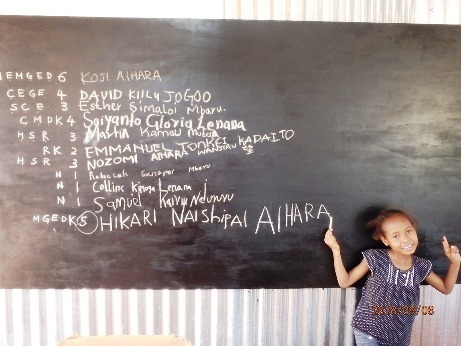 EMGED 6 KOJI AIHARA
CEGE 4 DAVID KIILU JOGOO
SCE 3 Esther Simaloi Mbaru.
CMDK 4 Saiyanto Gloria Lenana
HSR 3 Martha Kamau Mutua
RK 2 EMMANUEL TONKEI KADAITO
HSR 3 NOZOMI AIHARA WANJIRU
N 1 Rebeccah
N 1 Collins Lenam
N 1 Samuel
MGEDK 5 HIKARI NAIShipai AIHARA